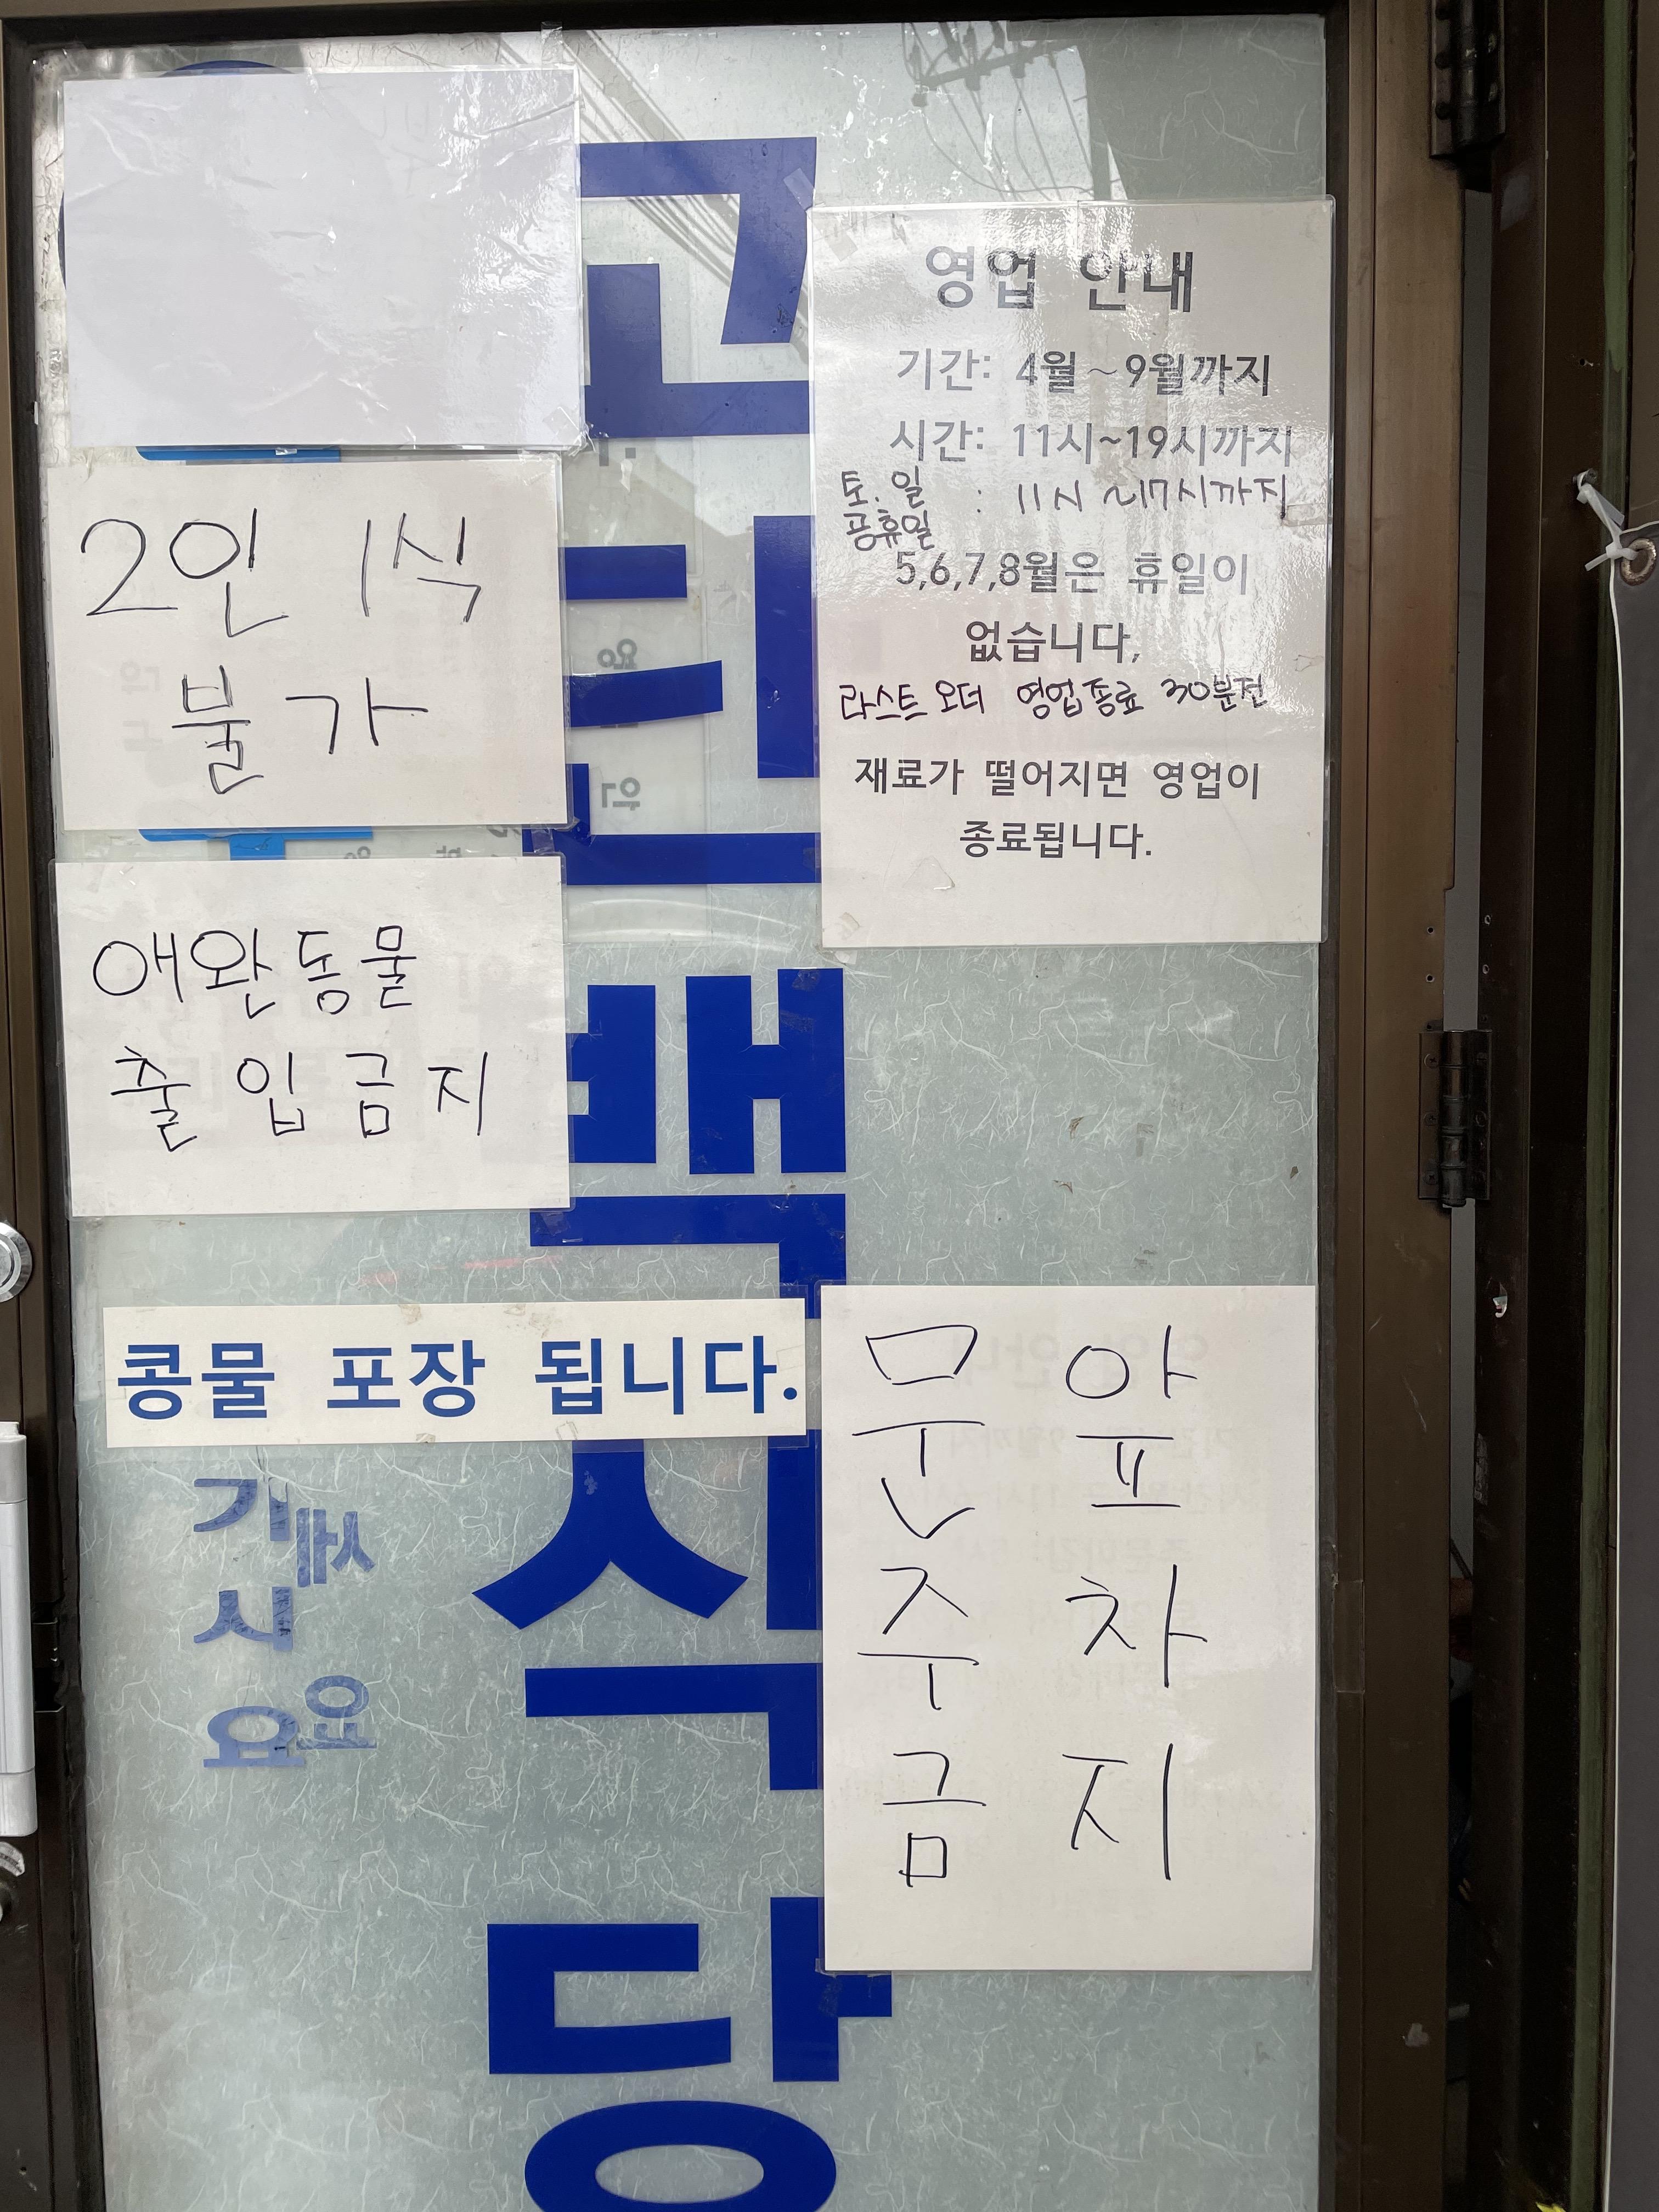 영업 안내
기간: 4월 ~ 9월까지
시간: 11시~19시까지
토.일
공휴일 : 11시 ~17시까지
5,6,7,8월은 휴일이
없습니다,
라스트 오더 영업종료 30분전
재료가 떨어지면 영업이
종료됩니다.
2인 1식
불가
애완동물
출입금지
콩물 포장 됩니다.
문 앞
주 차
금 지
백
식
당